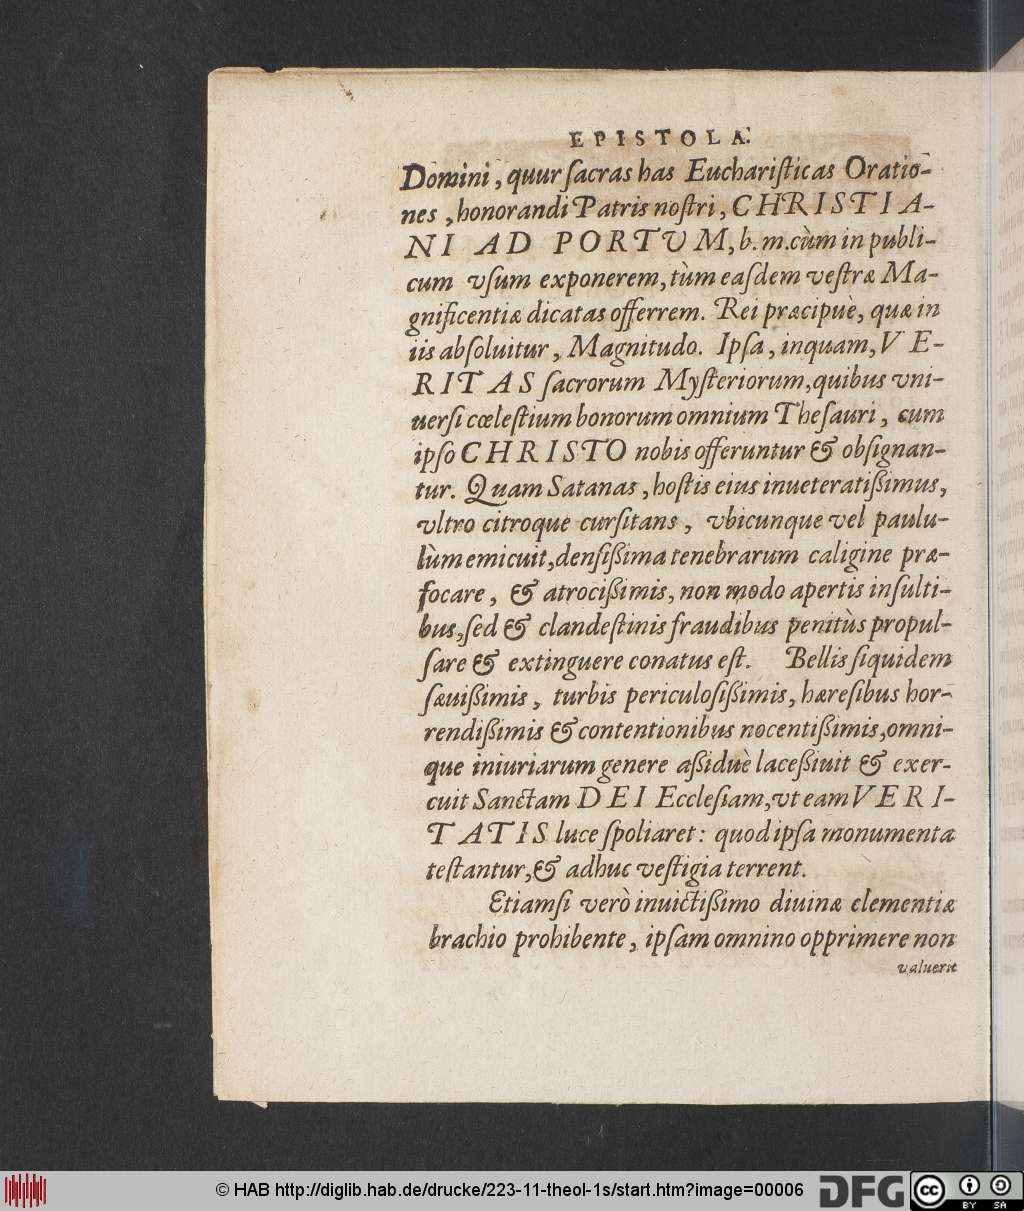 EPISTOLÆ
Domini, quur sacras has Eucharisticas Oratio-
nes, honorandi Patris nostri, CHRISTIA-
NI AD PORTUM, b. m. cùm in publi-
cum vsum exponerem, tùm easdem vestræ Ma-
gnificentiæ dicatas offerrem. Rei præcipuè, quæ in
iis absoluitur, Magnitudo. Ipsa, inquam, VE-
RITAS sacrorum Mysteriorum, quibus vni-
uersi cœlestium bonorum omnium Thesauri, cum
ipso CHRISTO nobis offeruntur & obsignan-
tur. Quam Satanas, hostis eius inueteratißimus,
vltro citroque cursitans, vbicunque vel paulu-
lùm emicuit, densißima tenebrarum caligine præ-
focare, & atrocißimis, non modo apertis insulti-
bus, sed & clandestinis fraudibus penitùs propul-
sare & extinguere conatus est. Bellis siquidem
sæuißimis, turbis periculosißimis, hæresibus hor-
rendißimis & contentionibus nocentißimis, omni-
que iniuriarum genere aßiduè laceßiuit & exer-
cuit Sanctam DEI Ecclesiam, vt eam VERI-
TATIS luce spoliaret: quod ipsa monumenta
testantur, & adhuc vestigia terrent.
Etiamsi verò inuictißimo diuinæ clementiæ
brachio prohibente, ipsam omnino opprimere non
valuerit
© HAB http://diglib.hab.de/drucke/223-11-theol-1s/start.htm?image=00006 DFG cc BY SA